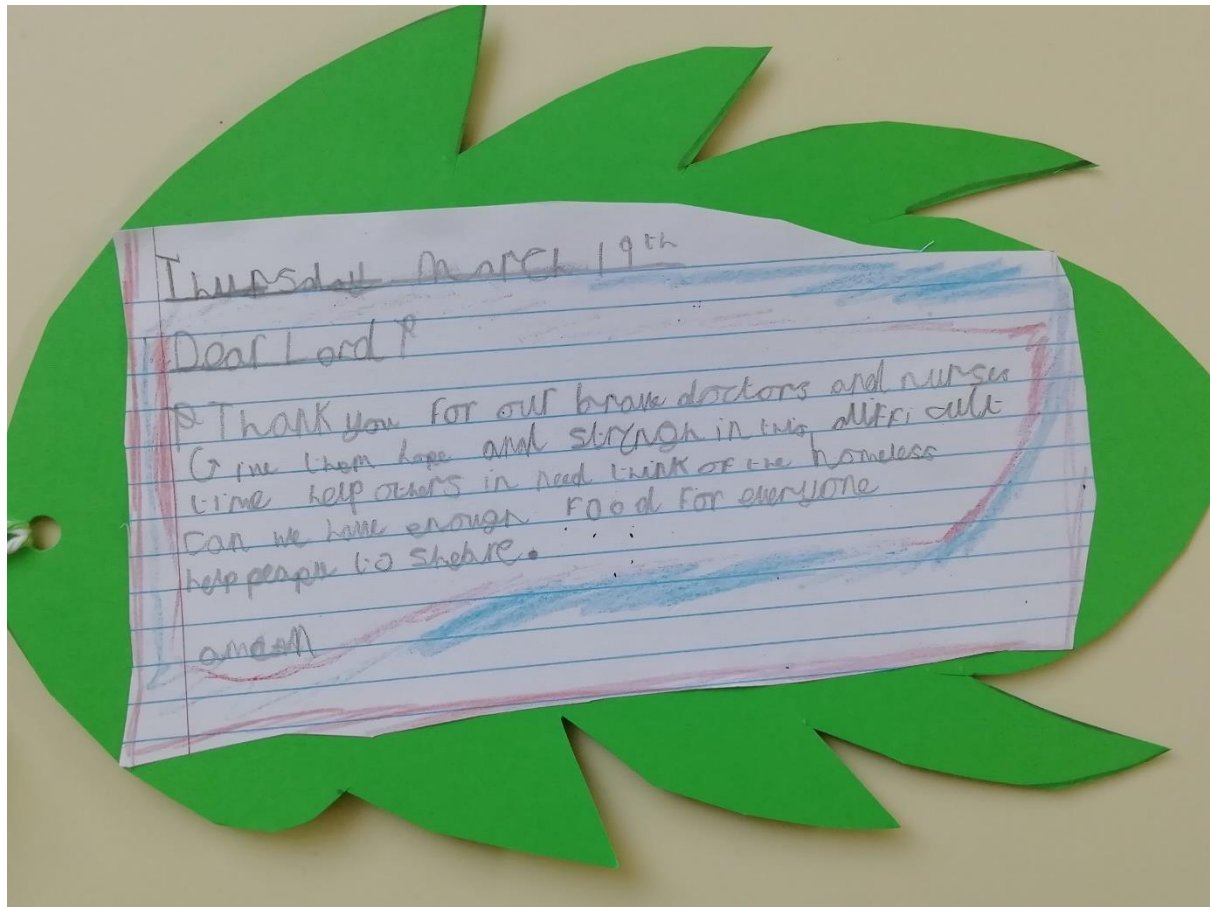 Thursday March 19th
Dear Lord
Thank you for our brave doctors and nurses
Give them hope and strengh in this difficult
time help others in need think of the homeless
can we have enough Food For everyone
help people to shebre.
amean